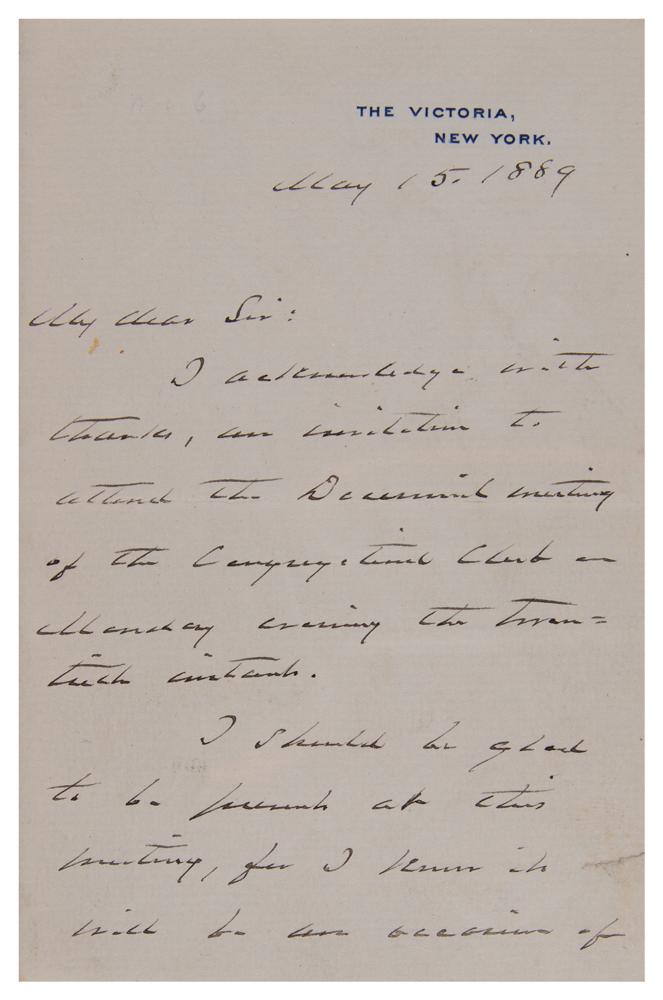 THE VICTORIA,
NEW YORK.
May 15. 1889
My dear Sir:
I acknowledge with
thanks, an invitation to
attend the Decennial meeting
of the Congregational Club on
Monday evening the twen=
tieth instant.
I should be glad
to be present at this
meeting, for I know it
will be an occasion of